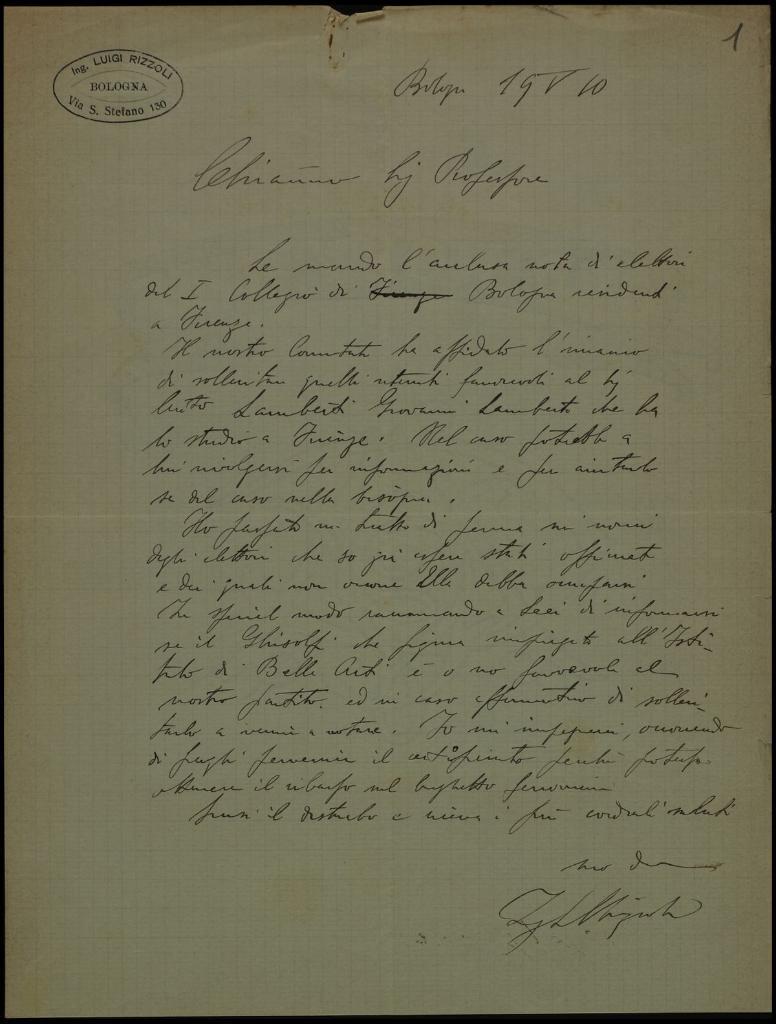 1
Ing. LUIGI RIZZOLI
BOLOGNA
Via S. Stefano 130
Bologna 19 V 10
Chiarissimo Sig Professore
Le mando l'acclusa nota di elettori
del I Collegio di Firenze Bologna residenti
a Firenze.
Il nostro Comitato ha affidato l'incarico
di sollecitare quelli ritenuti favorevoli al Sig
Lamberti Giovanni Lamberto che ha
lo studio a Firenze. Nel caso potrebbe a
lui rivolgersi per informazioni e per aiutarlo
se del caso nella bisogna.
Ho passato un tratto di penna sui nomi
degli elettori che so già essere stati
e dei quali non occorre Ella debba occuparsi
In special modo raccomando a Lei di informarsi
se il Ghisolfi che figura impiegato all'Isti-
tuto di Belle Arti è o no favorevole al
nostro partito. ed in caso affermativo di solleci-
tarlo a venire a votare. Io mi impegnerei, occorrendo
di fargli pervenire il perchè potesse
ottenere il ribasso sul biglietto ferroviario
Scusi il disturbo e riceva i più cordiali saluti
suo